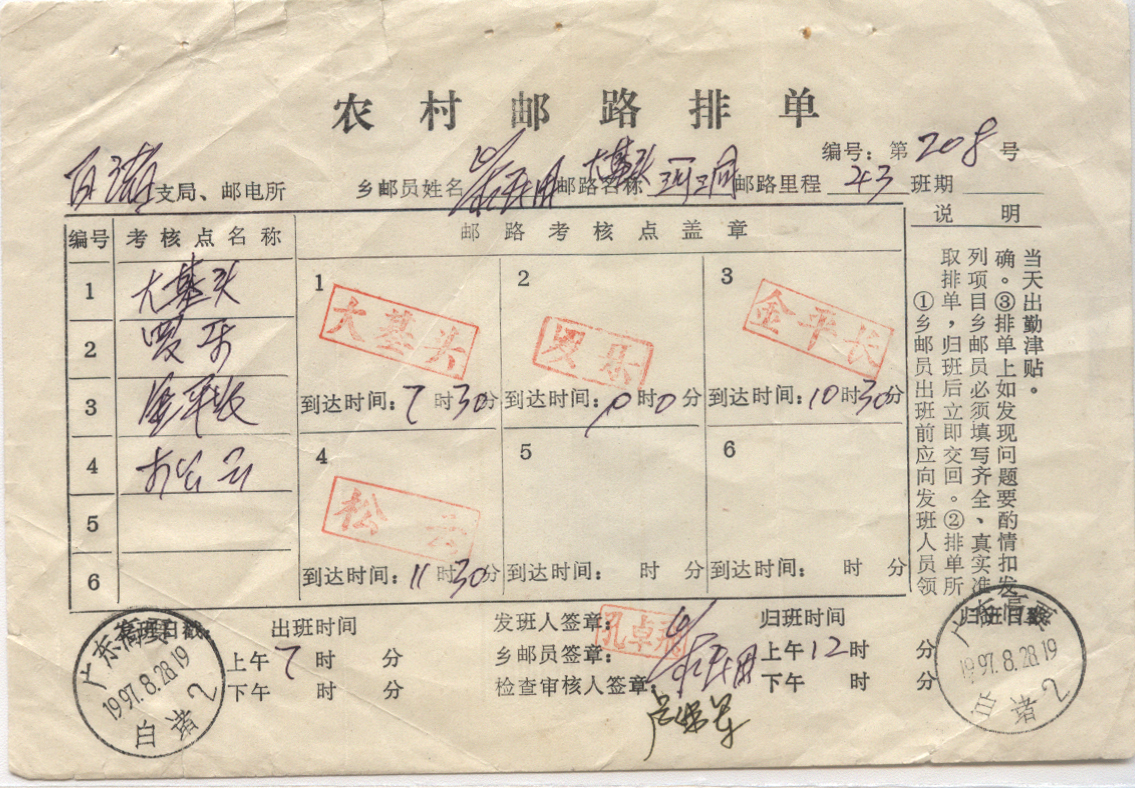 农村邮路排单
编号：第208号
白诸支局、邮电所 乡邮员姓名 邮路名称 大基头 邮路里程 43 班期
编号 考核点名称 邮路考核点盖章 说明
1 大基头
2 罗乐
3 金平长
4 松云
5
6
1 大基头 到达时间：7时30分
2 罗乐 到达时间：9时0分
3 金平长 到达时间：10时30分
4 松云 到达时间：11时30分
5 到达时间： 时 分
6 到达时间： 时 分
①乡邮员出班前应向发班人员领
取排单，归班后立即交回。②排单所
列项目乡邮员必须填写齐全、真实准
确。③排单上如发现问题要酌情扣发
当天出勤津贴。
出班日戳： 出班时间 发班人签章： 孔卓飛 归班时间 归班日戳
上午7时 分 乡邮员签章： 上午12时 分
下午 时 分 检查审核人签章： 下午 时 分
广东高要
1997.8.28.19
白诸2
广东高要
1997.8.28.19
白诸2